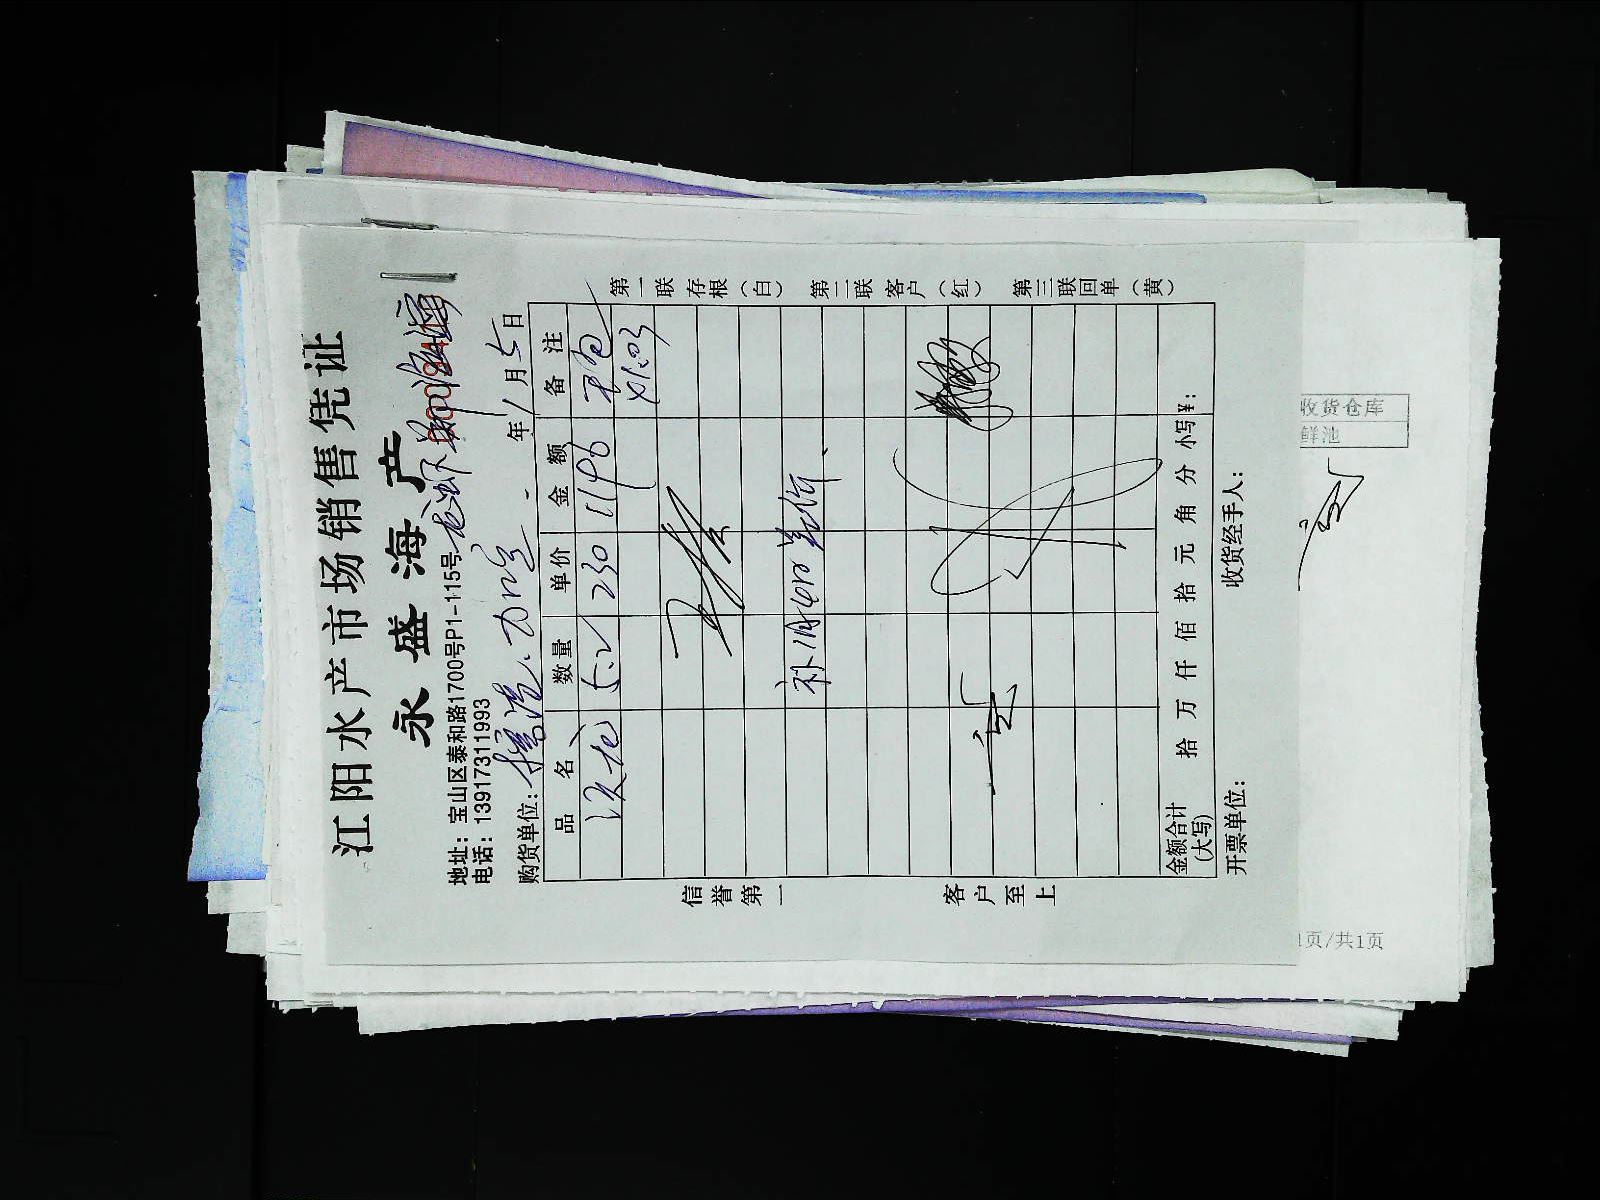 江阳水产市场销售凭证
永盛海产
地址：宝山区泰和路1700号P1-115号
电话：13917311993
购货单位：
年1月5日
品名 数量 单价 金额 备注
5.2 230 1196
补1月4日差价
金额合计(大写) 拾 万 仟 佰 拾 元 角 分 小写¥：
开票单位： 收货经手人：
信誉第一 客户至上
第一联存根(白) 第二联客户(红) 第三联回单(黄)
收货仓库
鲜池
1页/共1页